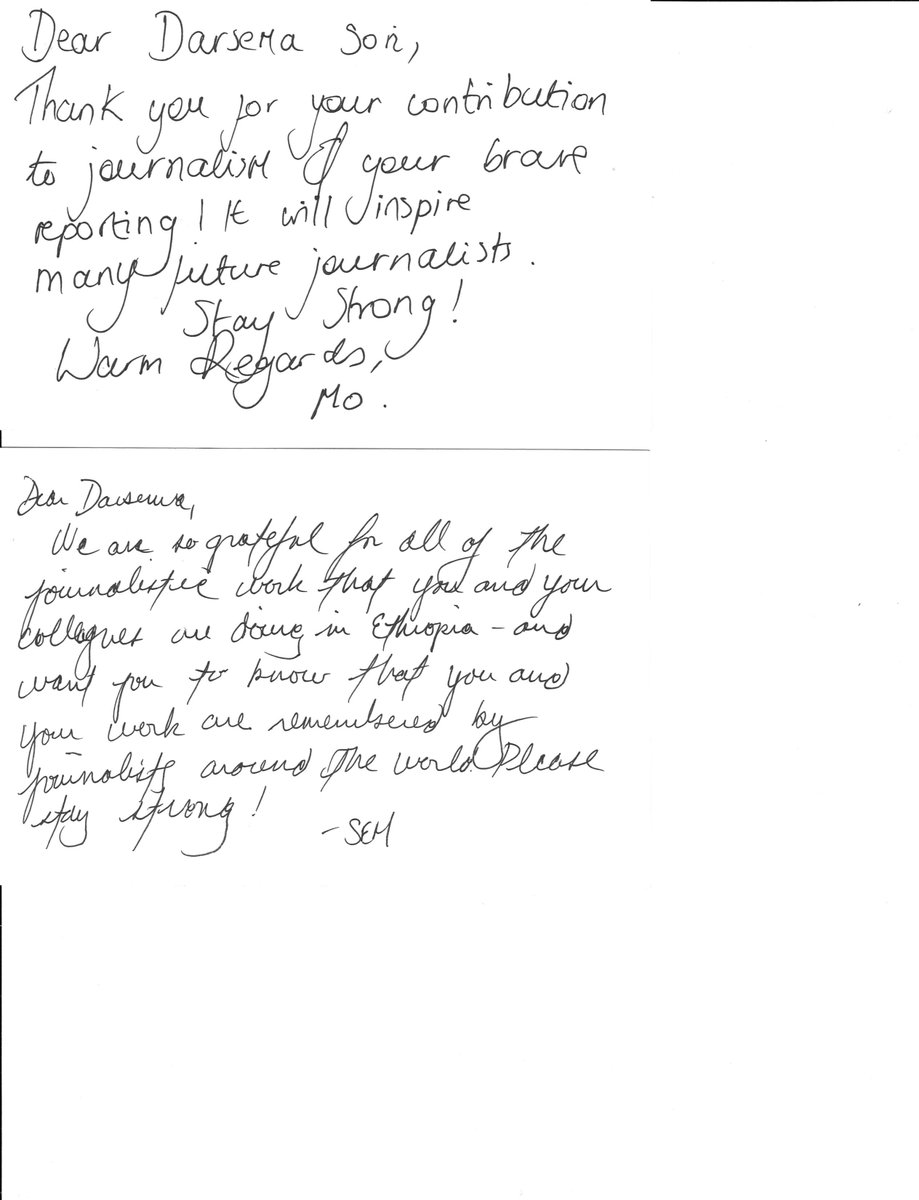 Dear Darsema Sori,
Thank you for your contribution
to journalism & your brave
reporting! It will inspire
many future journalists.
Stay Strong!
Warm Regards,
Mo.
Dear Darsema,
We are so grateful for all of the
journalistic work that you and your
collegues are doing in Ethiopia - and
want you to know that you and
your work are remembered by
journalists around the world. Please
stay strong!
- SEM